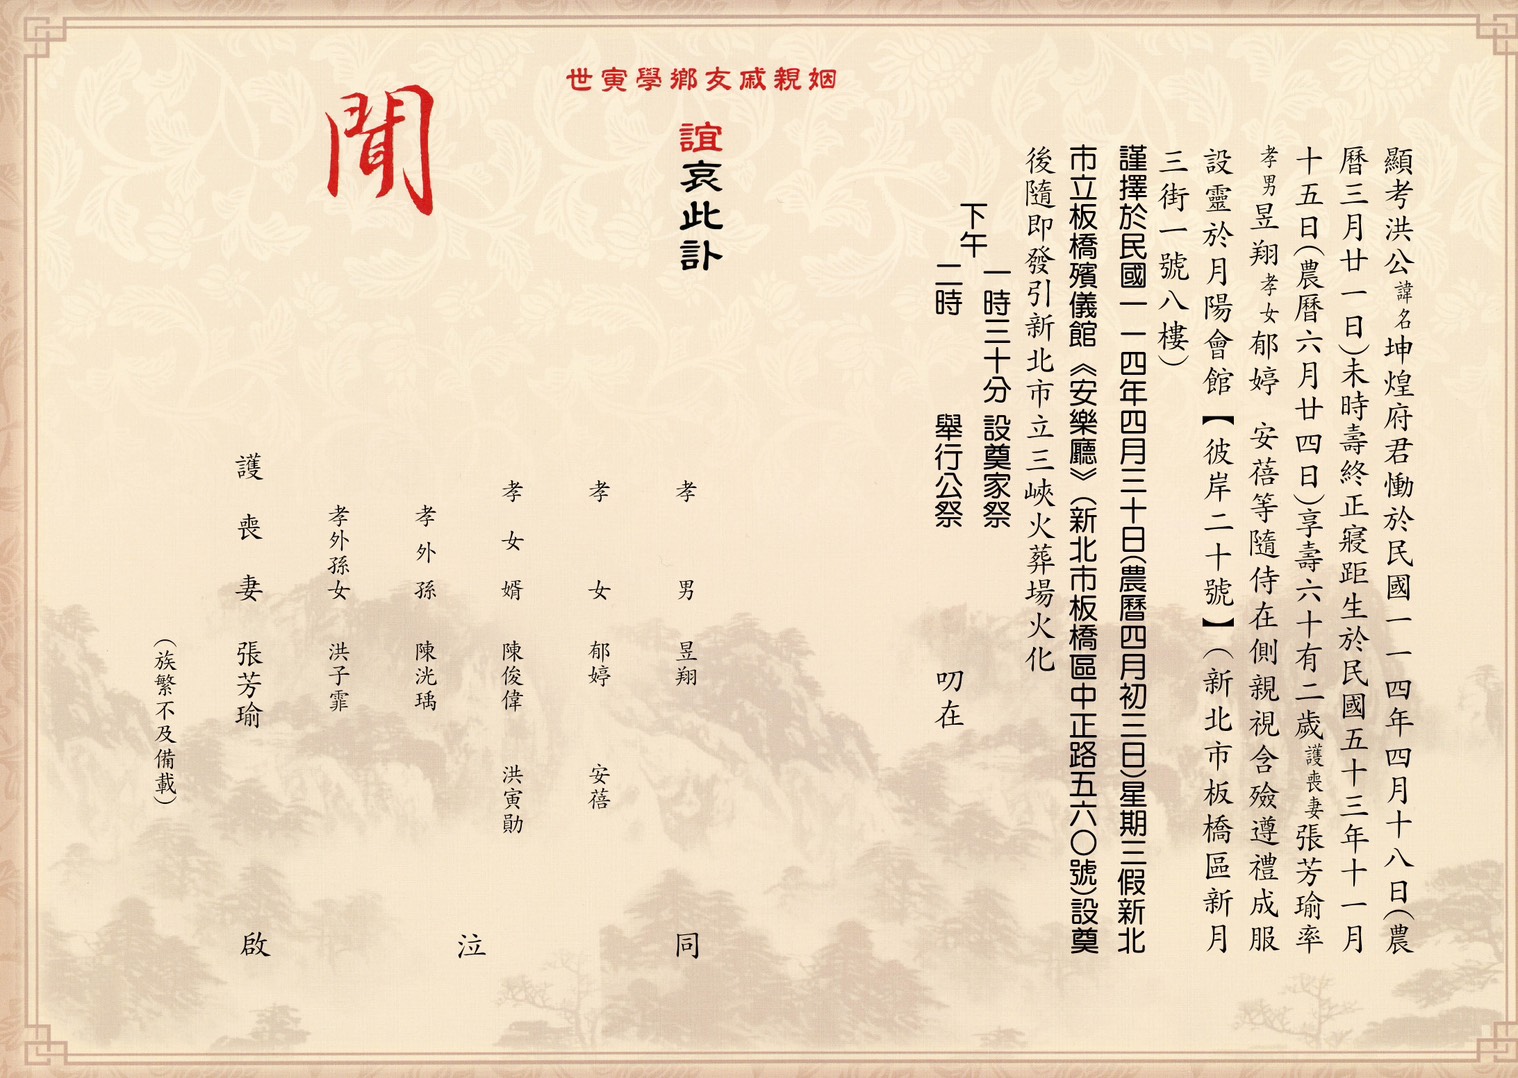 顯考洪公諱名坤煌府君慟於民國一一四年四月十八日(農
曆三月廿一日)未時壽終正寢距生於民國五十三年十一月
十五日(農曆六月廿四日)享壽六十有二歲護喪妻張芳瑜率
孝男昱翔孝女郁婷 安蓓等隨侍在側親視含殮遵禮成服
設靈於月陽會館【彼岸二十號】(新北市板橋區新月
三街一號八樓)
謹擇於民國一一四年四月三十日(農曆四月初三日)星期三假新北
市立板橋殯儀館《安樂廳》(新北市板橋區中正路五六〇號)設奠
後隨即發引新北市立三峽火葬場火化
下午
一時三十分 設奠家祭
二時 舉行公祭
叨在
姻親戚友鄉學寅世
誼哀此訃
聞
孝男 昱翔
孝女 郁婷 安蓓
孝女婿 陳俊偉 洪寅勛
孝外孫 陳洸瑀
孝外孫女 洪子霏
護喪妻 張芳瑜
(族繁不及備載)
同 泣 啟